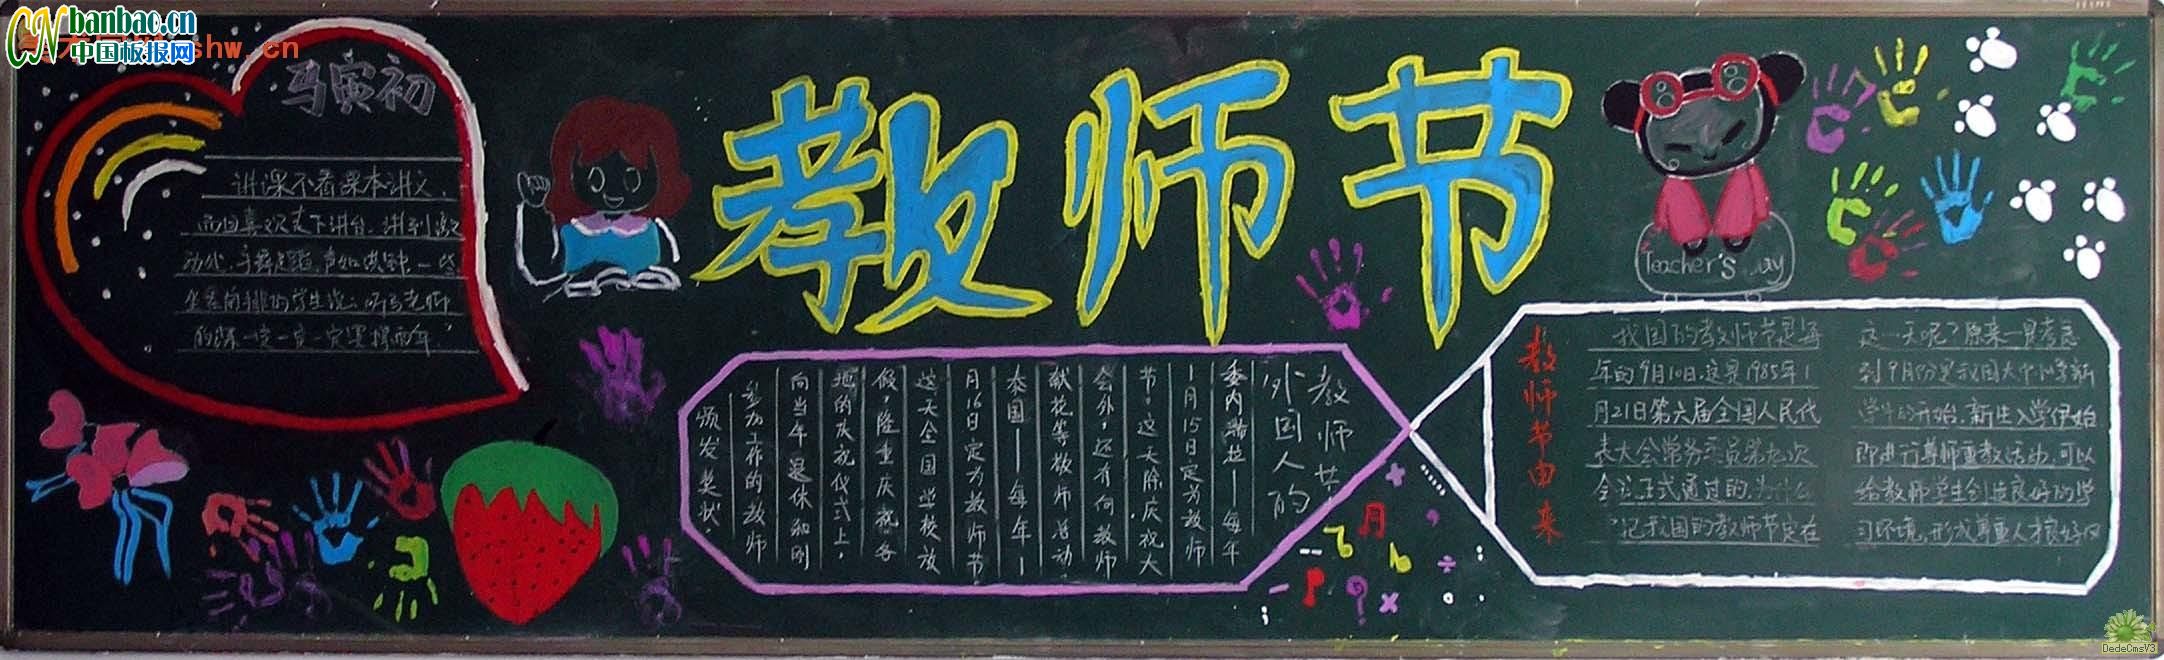 banbao.cn
中国板报网
shw.cn
马寅初
讲课不看课本讲义，
而且喜欢走下讲台，讲到激
动处，手舞足蹈，声如洪钟，一些
坐在前排的学生说：听马老师
的课一定
教师节
Teacher's ay
外国人的
教师节
委内瑞拉——每年
1月15日定为教师
节。这天除庆祝大
会外，还有向教师
献花等敬师活动。
泰国——每年1
月16日定为教师节，
这天全国学校放
假，隆重庆祝，各
地的庆祝仪式上，
向当年退休和刚
参加工作的教师
颁发奖状。
教师节由来
我国的教师节是每
年的9月10日，这是1985年1
月21日第六届全国人民代
表大会常务委员第九次
会议正式通过的，为什么
记我国的教师节定在
这一天呢？原来一是考虑
到9月份是我国大中小学新
学年的开始，新生入学伊始
即进行尊师重教活动，可以
给教师学生创造良好的学
习环境，形成尊重人才良好
DedeCmsV3